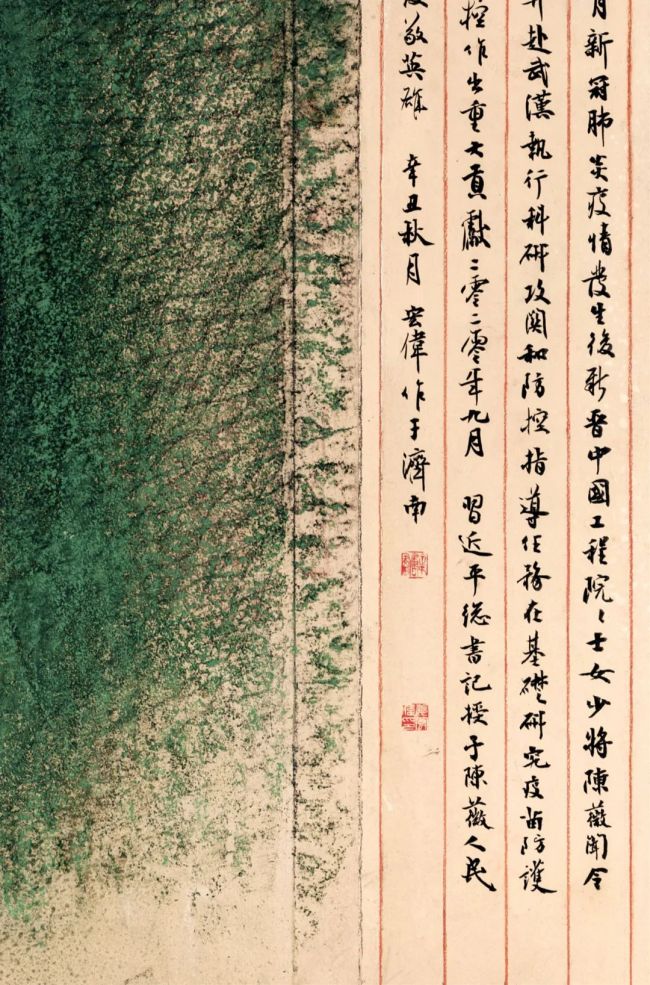 月新冠肺炎疫情發生後新晋中國工程院〻士女少將陳薇聞令
赴武漢執行科研攻関和防控指導任務在基礎研究疫苗防護
控作出重大貢獻二零二零年九月 習近平総書記授予陳薇人民
敬英雄 辛丑秋月 宏偉作于濟南